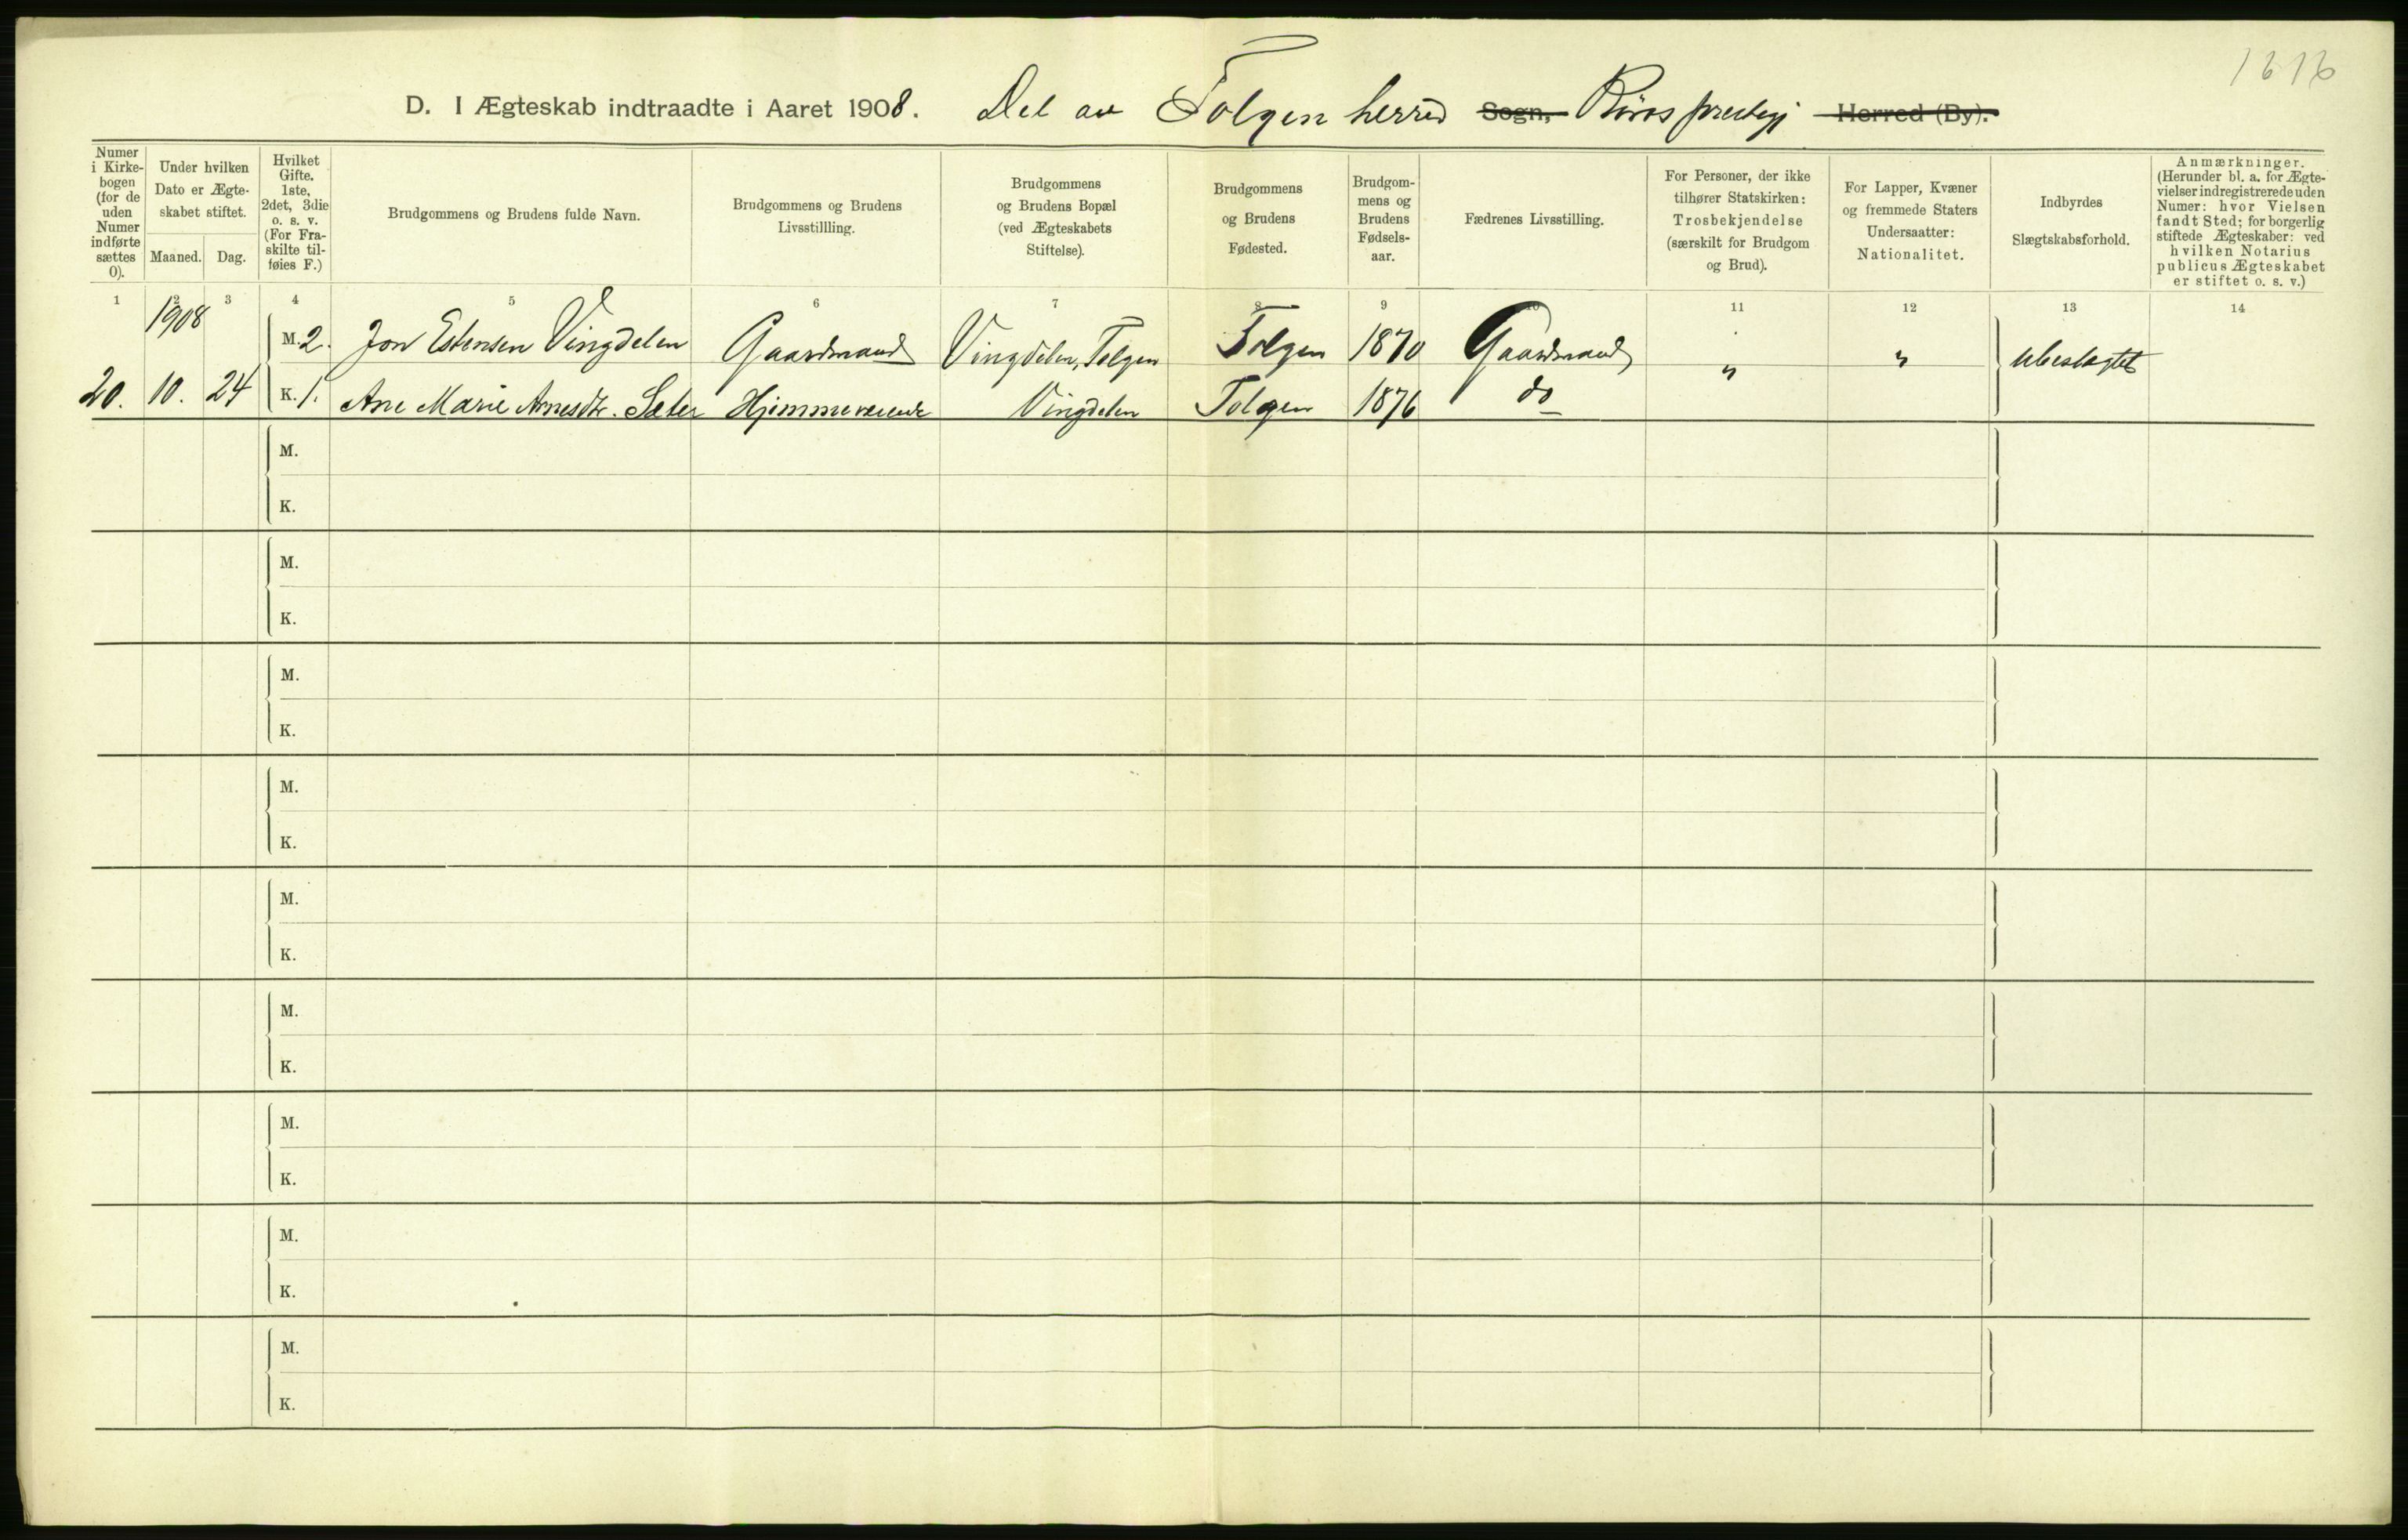 1616
D. I Ægteskab indtraadte i Aaret 1908. Del av Tolgen herred Sogn, Röros prestegj Herred (By).
Numer i Kirkebogen (for de uden Numer indførte sættes 0).
Under hvilken Dato er Ægteskabet stiftet.
Maaned. Dag.
Hvilket Gifte. 1ste, 2det, 3die o. s. v. (For Fraskilte tilføies F.)
Brudgommens og Brudens fulde Navn.
Brudgommens og Brudens Livsstillling.
Brudgommens og Brudens Bopæl (ved Ægteskabets Stiftelse).
Brudgommens og Brudens Fødested.
Brudgommens og Brudens Fødselsaar.
Fædrenes Livsstilling.
For Personer, der ikke tilhører Statskirken: Trosbekjendelse (særskilt for Brudgom og Brud).
For Lapper, Kvæner og fremmede Staters Undersaatter: Nationalitet.
Indbyrdes Slægtskabsforhold.
Anmærkninger. (Herunder bl. a. for Ægtevielser indregistrerede uden Numer: hvor Vielsen fandt Sted; for borgerlig stiftede Ægteskaber: ved hvilken Notarius publicus Ægteskabet er stiftet o. s. v.)
1 2 3 4 5 6 7 8 9 10 11 12 13 14
1908
M. 2. Jon Estensen Vingdelen Gaardmand Vingdelen, Tolgen Tolgen 1870 Gaardmand " " Ubeslægtet
20. 10. 24 K. 1. Ane Marie Arnesdtr. Sæter Hjemmeværende Vingdelen Tolgen 1876 do
M.
K.
M.
K.
M.
K.
M.
K.
M.
K.
M.
K.
M.
K.
M.
K.
M.
K.